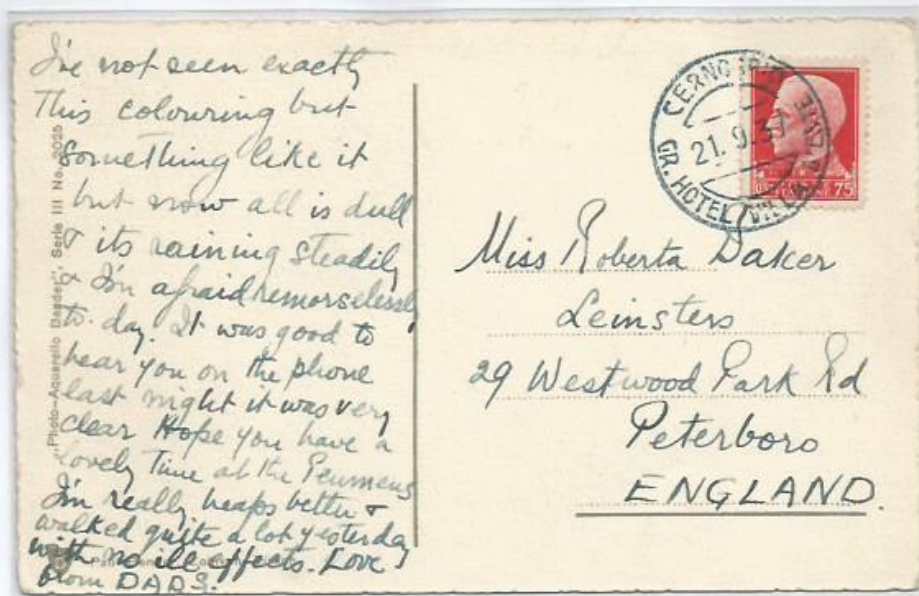 I've not seen exactly
This colouring but
something like it
but now all is dull
& its raining steadily
& I'm afraid remorselessly
to day. It was good to
hear you on the phone
last night it was very
clear Hope you have a
lovely time at the
I'm really heaps better &
walked quite a lot yesterday
with no ill effects. Love
from DADS.
"Photo-Aquarello Serie III No. 2025
CERNOBBIO
21.9.37
GR. HOTEL VILLA D'ESTE
75
Miss Roberta Daker
Leinsters
29 Westwood Park Rd
Peterboro
ENGLAND